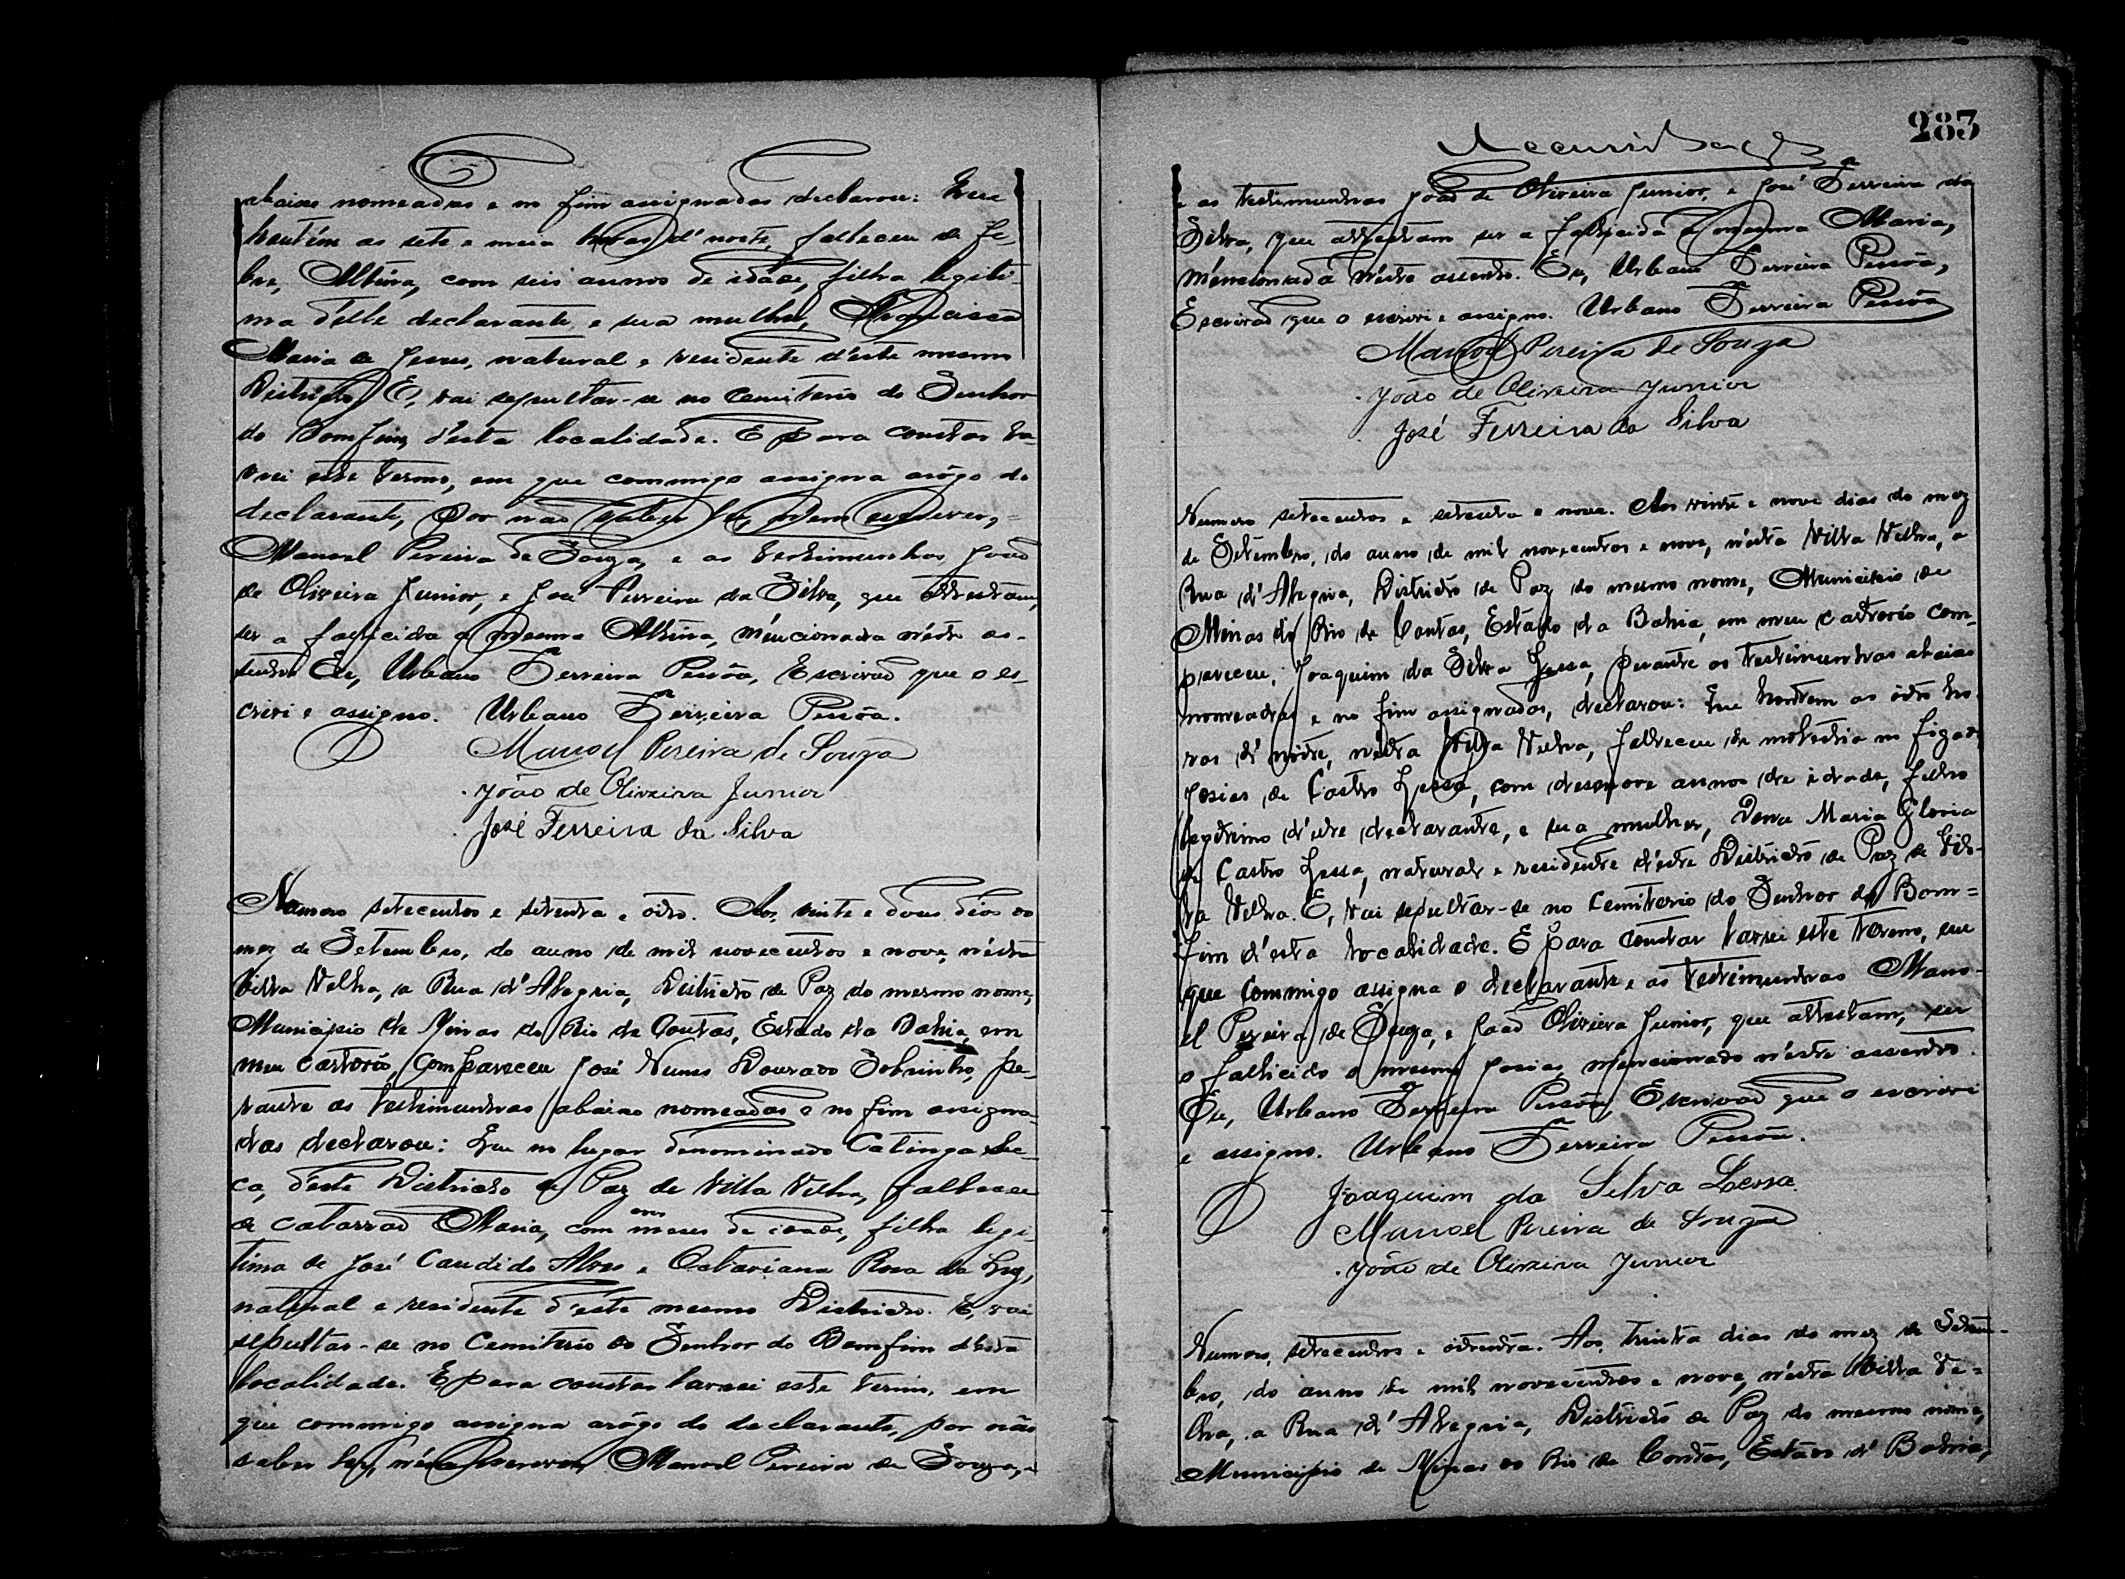 abaixo nomeadas e no fim assignadas declarou: Que
hontém as sete e meia horas d'noite, falleceu de fe-
bre, Albina, com seis annos de idade, filha legiti-
ma d'elle declarante, e sua mulher, Francisca
Maria de Jesus, natural e residente d'este mesmo
Districto. E, vai sepultar-se no Cemiterio do Senhor
do Bomfim, d'esta localidade. E para constar la-
vrei este termo, em que commigo assigna arôgo do
declarante, por não saber ler, nem escrever,
Manoel Pereira de Souza, e as testimunhas, João
de Oliveira Junior, e José Ferreira da Silva, que attestam,
ser a fallecida a mesma Albina, méncionada n'éste as-
sento. Eu, Urbano Ferreira Pessôa, Escrivão que o es-
crivi e assigno. Urbano Ferreira Pessôa.
Manoel Pereira de Souza
João de Oliveira Junior
José Ferreira da Silva
Numero setecentos e setenta e oito. Aos vinte e dous dias do
mez de Setembro, do anno de mil novecentos e nove, n'ésta
Villa Velha, a Rua d'Alegria, Districto de Paz do mesmo nome,
Municipio de Minas do Rio de Contas, Estado da Bahia, em
meu cartorio, compareceu José Nunes Dourado Sobrinho, pe-
rante as testimunhas abaixo nomeadas e no fim assigna-
das declarou: Que no lugar denominado Catinga Sec-
ca, d'este Districto de Paz de Villa Velha, falleceu
de catarrão Maria, com onze mezes de idade, filha legi-
tima de José Candido Alves e Catariana Rosa da Luz,
natural e residente d'este mesmo Districto. E, vai
sepultar-se no Cemiterio do Senhor do Bomfim d'esta
localidade. E para constar lavrei este termo, em
que commigo assigna arôgo do declarante, por não
saber ler, nem escrever, Manoel Pereira de Souza, e
283
e as testimunhas João de Oliveira Junior, e José Ferreira da
Silva, que attestam ser a fallecida a mesma Maria,
méncionada n'éste assento. Eu, Urbano Ferreira Pessôa,
Escrivão que o escrivi e assigno. Urbano Ferreira Pessôa
Manoel Pereira de Souza
João de Oliveira Junior
José Ferreira da Silva
Numero setecentos e setenta e nove. Aos vinte e nove dias do mez
de Setembro, do anno de mil novecentos e nove, n'ésta Villa Velha, a
Rua d'Alegria, Districto de Paz do mesmo nome, Municipio de
Minas do Rio de Contas, Estado da Bahia, em meu cartorio com-
pareceu, Joaquim da Silva Lessa, perante as testimunhas abaixo
nomeadas e no fim assignadas, declarou: Que hontem as oito ho-
ras d'noite, n'ésta Villa Velha, falleceu de molestia no figado,
Josias de Castro Lessa, com desenove annos de idade, filho
legitimo d'este declarante, e sua mulher, Dona Maria Gloria
de Castro Lessa, natural e residente d'éste Districto de Paz de Vil-
la Velha. E, vai sepultar-se no Cemiterio do Senhor do Bom-
fim d'esta localidade. E para constar lavrei este termo, em
que commigo assigna o declarante e as testimunhas Mano-
el Pereira de Souza, e João Oliveira Junior, que attestam, ser
o fallecido o mesmo Josias mencionado n'éste assento.
Eu, Urbano Ferreira Pessôa, Escrivão que o escrivi
e assigno. Urbano Ferreira Pessôa.
Joaquim da Silva Lessa
Manoel Pereira de Souza
João de Oliveira Junior
Numero, setecentos e oitenta. Aos, trinta dias do mez de Setem-
bro, do anno de mil novecentos e nove, n'ésta Villa Ve-
lha, a Rua d'Alegria, Districto de Paz do mesmo nome,
Municipio de Minas do Rio de Contas, Estado d'Bahia,